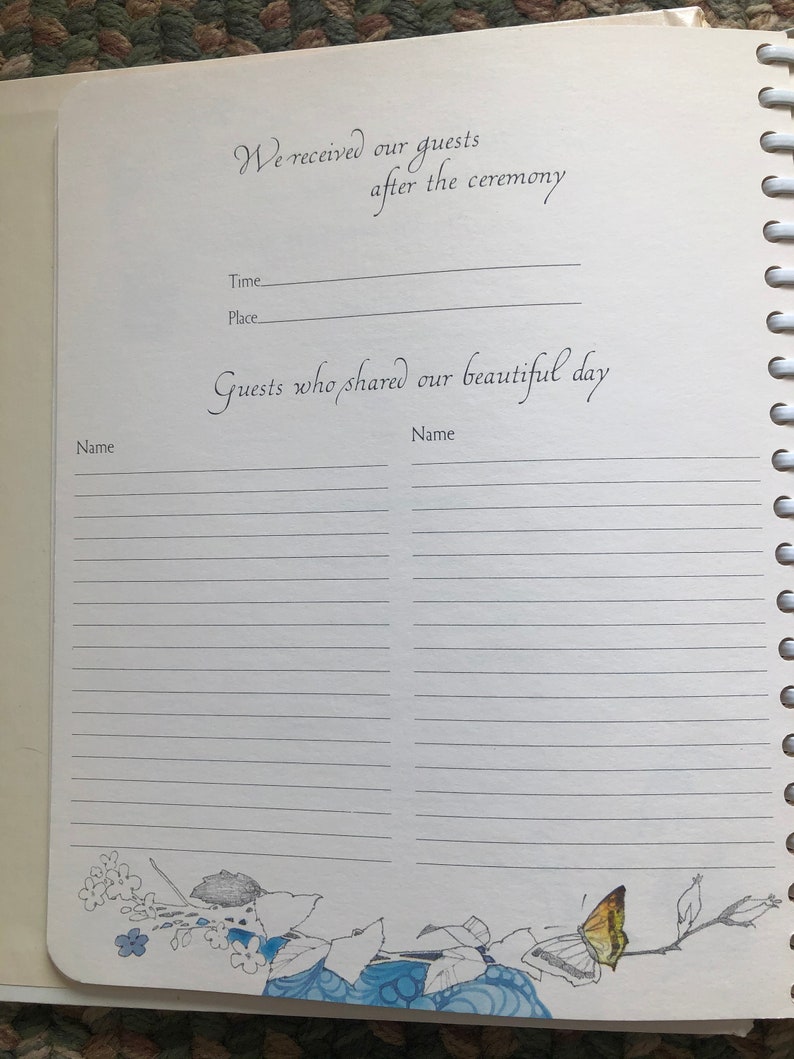 We received our guests
after the ceremony
Time
Place
Guests who shared our beautiful day
Name
Name